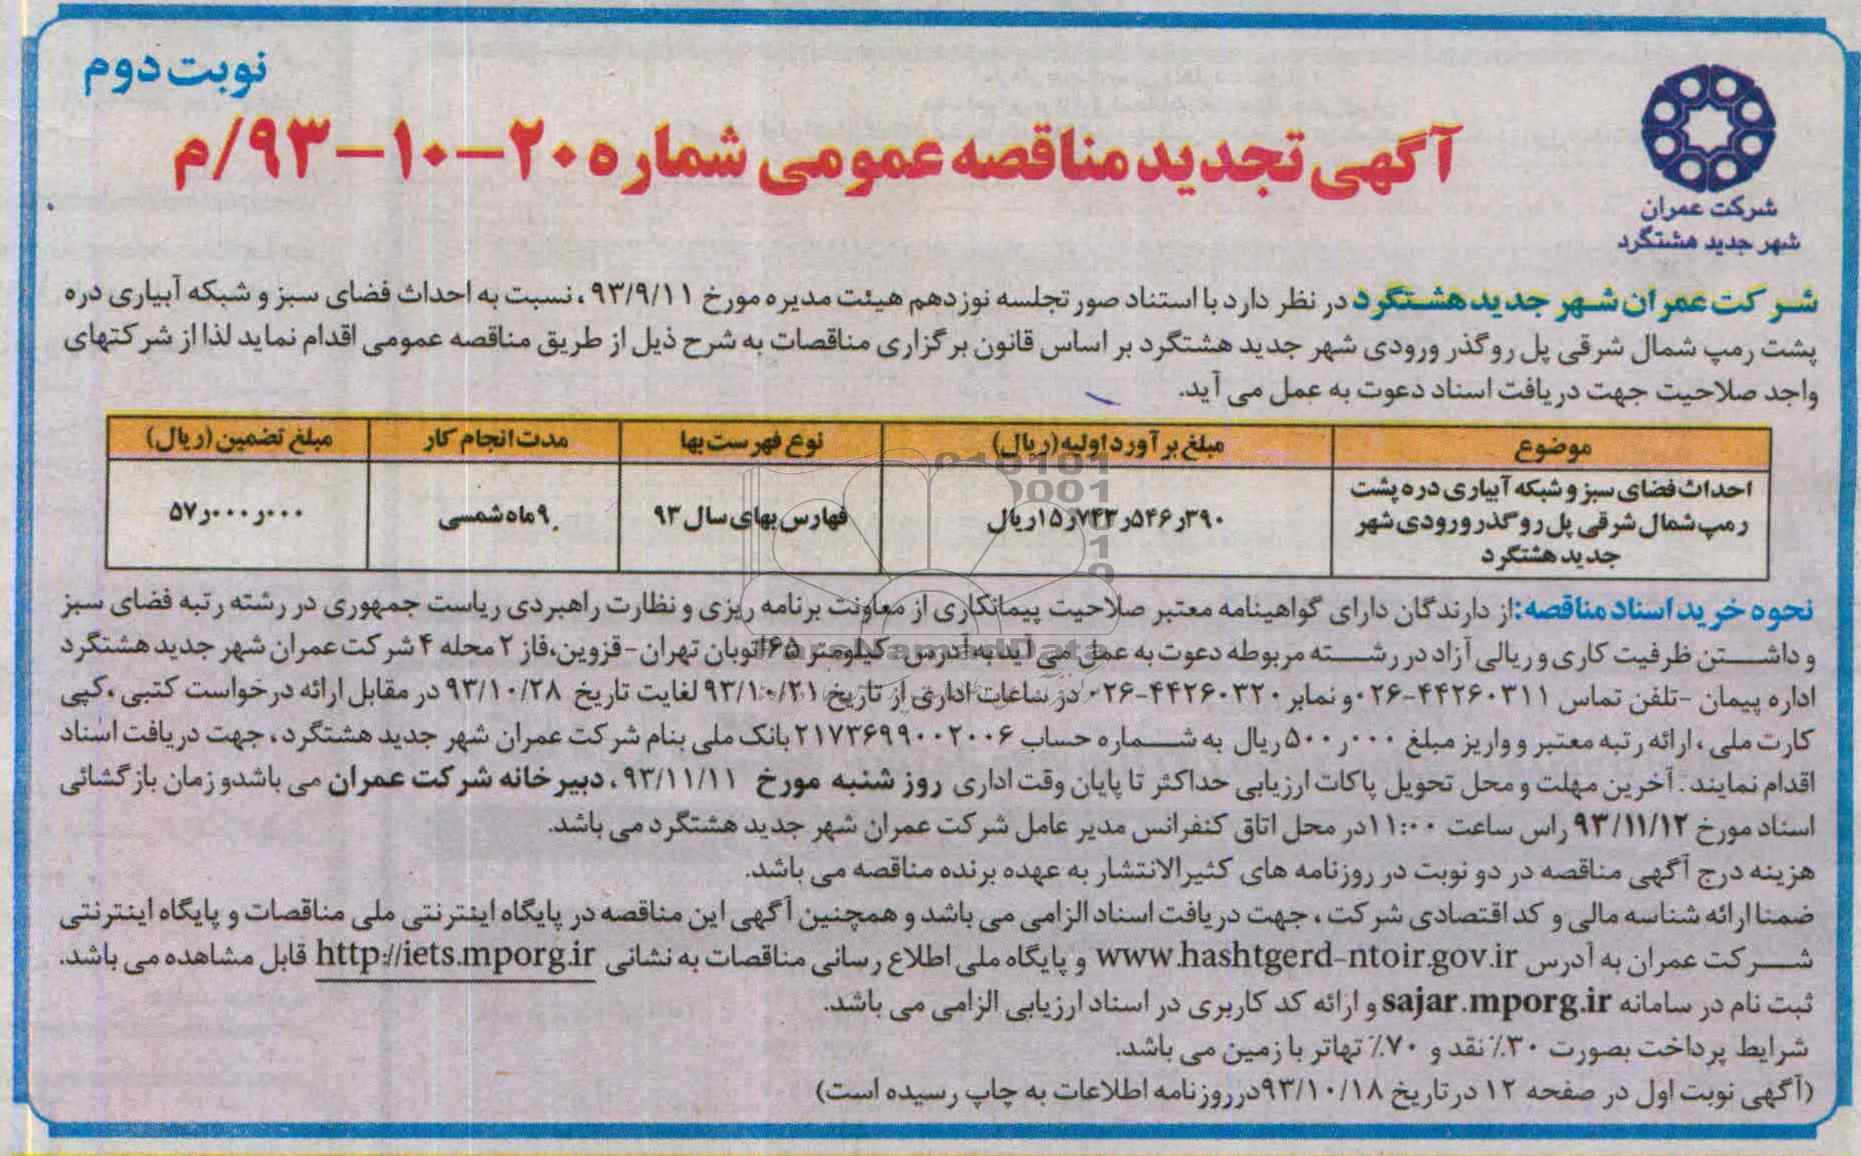 نوبت دوم
آگهی تجدید مناقصه عمومی شماره ۲۰-۱۰-۹۳/م
شرکت عمران
شهر جدید هشتگرد
شرکت عمران شهر جدید هشتگرد در نظر دارد با استناد صورتجلسه نوزدهم هیئت مدیره مورخ ۹۳/۹/۱۱، نسبت به احداث فضای سبز و شبکه آبیاری دره
پشت رمپ شمال شرقی پل روگذر ورودی شهر جدید هشتگرد بر اساس قانون برگزاری مناقصات به شرح ذیل از طریق مناقصه عمومی اقدام نماید لذا از شرکتهای
واجد صلاحیت جهت دریافت اسناد دعوت به عمل می آید.
موضوع	مبلغ برآورد اولیه (ریال)	نوع فهرست بها	مدت انجام کار	مبلغ تضمین (ریال)
احداث فضای سبز و شبکه آبیاری دره پشت
رمپ شمال شرقی پل روگذر ورودی شهر	۱۵ر۷۴۳ر۵۴۶ر۳۹۰ ریال	فهارس بهای سال ۹۳	۹ ماه شمسی	۵۷ر۰۰۰ر۰۰۰
جدید هشتگرد
نحوه خرید اسناد مناقصه: از دارندگان دارای گواهینامه معتبر صلاحیت پیمانکاری از معاونت برنامه ریزی و نظارت راهبردی ریاست جمهوری در رشته رتبه فضای سبز
و داشتن ظرفیت کاری و ریالی آزاد در رشته مربوطه دعوت به عمل می آید به آدرس -کیلومتر ۶۵ اتوبان تهران-قزوین،فاز ۲ محله ۴ شرکت عمران شهر جدید هشتگرد
اداره پیمان -تلفن تماس ۴۴۲۶۰۳۱۱-۰۲۶ و نمابر ۴۴۲۶۰۳۲۰-۰۲۶ در ساعات اداری از تاریخ ۹۳/۱۰/۲۱ لغایت تاریخ ۹۳/۱۰/۲۸ در مقابل ارائه درخواست کتبی ،کپی
کارت ملی ، ارائه رتبه معتبر و واریز مبلغ ۵۰۰ر۰۰۰ ریال به شماره حساب ۲۱۷۳۶۹۹۰۰۲۰۰۶ بانک ملی بنام شرکت عمران شهر جدید هشتگرد ، جهت دریافت اسناد
اقدام نمایند . آخرین مهلت و محل تحویل پاکات ارزیابی حداکثر تا پایان وقت اداری روز شنبه مورخ ۹۳/۱۱/۱۱ ، دبیرخانه شرکت عمران می باشدو زمان بازگشائی
اسناد مورخ ۹۳/۱۱/۱۲ راس ساعت ۱۱:۰۰ در محل اتاق کنفرانس مدیر عامل شرکت عمران شهر جدید هشتگرد می باشد.
هزینه درج آگهی مناقصه در دو نوبت در روزنامه های کثیرالانتشار به عهده برنده مناقصه می باشد.
ضمنا ارائه شناسه مالی و کد اقتصادی شرکت ، جهت دریافت اسناد الزامی می باشد و همچنین آگهی این مناقصه در پایگاه اینترنتی ملی مناقصات و پایگاه اینترنتی
شرکت عمران به آدرس www.hashtgerd-ntoir.gov.ir و پایگاه ملی اطلاع رسانی مناقصات به نشانی http://iets.mporg.ir قابل مشاهده می باشد.
ثبت نام در سامانه sajar.mporg.ir و ارائه کد کاربری در اسناد ارزیابی الزامی می باشد.
شرایط پرداخت بصورت ۳۰٪ نقد و ۷۰٪ تهاتر با زمین می باشد.
(آگهی نوبت اول در صفحه ۱۲ در تاریخ ۹۳/۱۰/۱۸ در روزنامه اطلاعات به چاپ رسیده است)